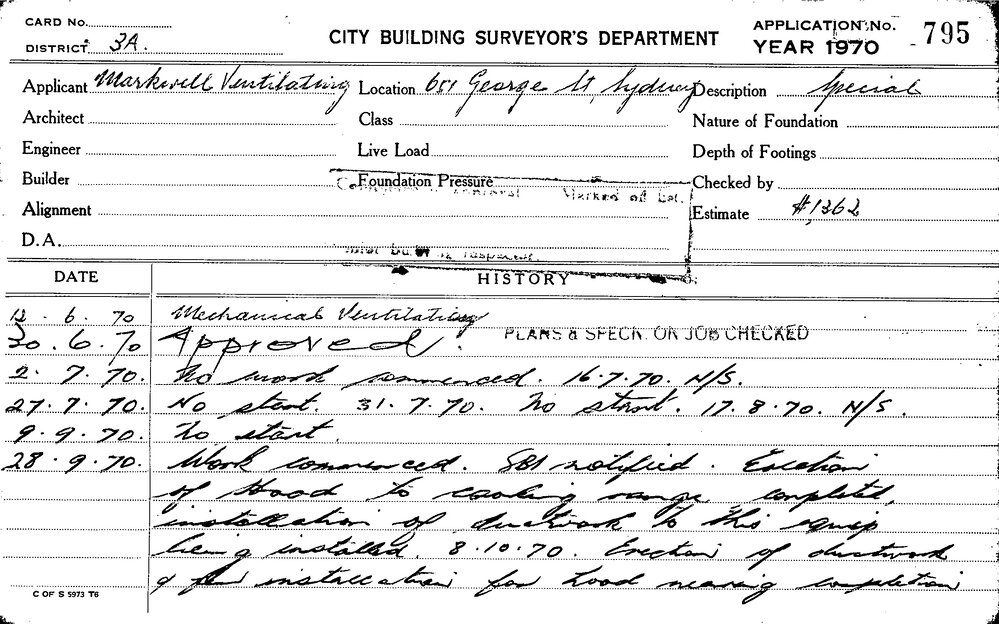 CARD No.
DISTRICT 3A.
CITY BUILDING SURVEYOR'S DEPARTMENT
APPLICATION No. 795
YEAR 1970
Applicant Markwell Ventilating Location 651 George St, Sydney Description Special
Architect Class Nature of Foundation
Engineer Live Load Depth of Footings
Builder Foundation Pressure Checked by
Marked off List.
Alignment Estimate #1362
D.A.
DATE HISTORY
12. 6. 70 Mechanical Ventilating
PLANS & SPECN. ON JOB CHECKED
30. 6. 70 Approved.
2. 7. 70. No work commenced. 16.7.70. N/S.
27. 7. 70. No start. 31. 7. 70. No start. 17. 8. 70. N/S.
9. 9. 70. No start.
28. 9. 70. Work commenced. notified. Erection
of Hood to cooking range completed,
installation of ductwork to this equip
being installed. 8.10.70. Erection of ductwork
& installation for hood nearing completion
C OF S 5973 T6